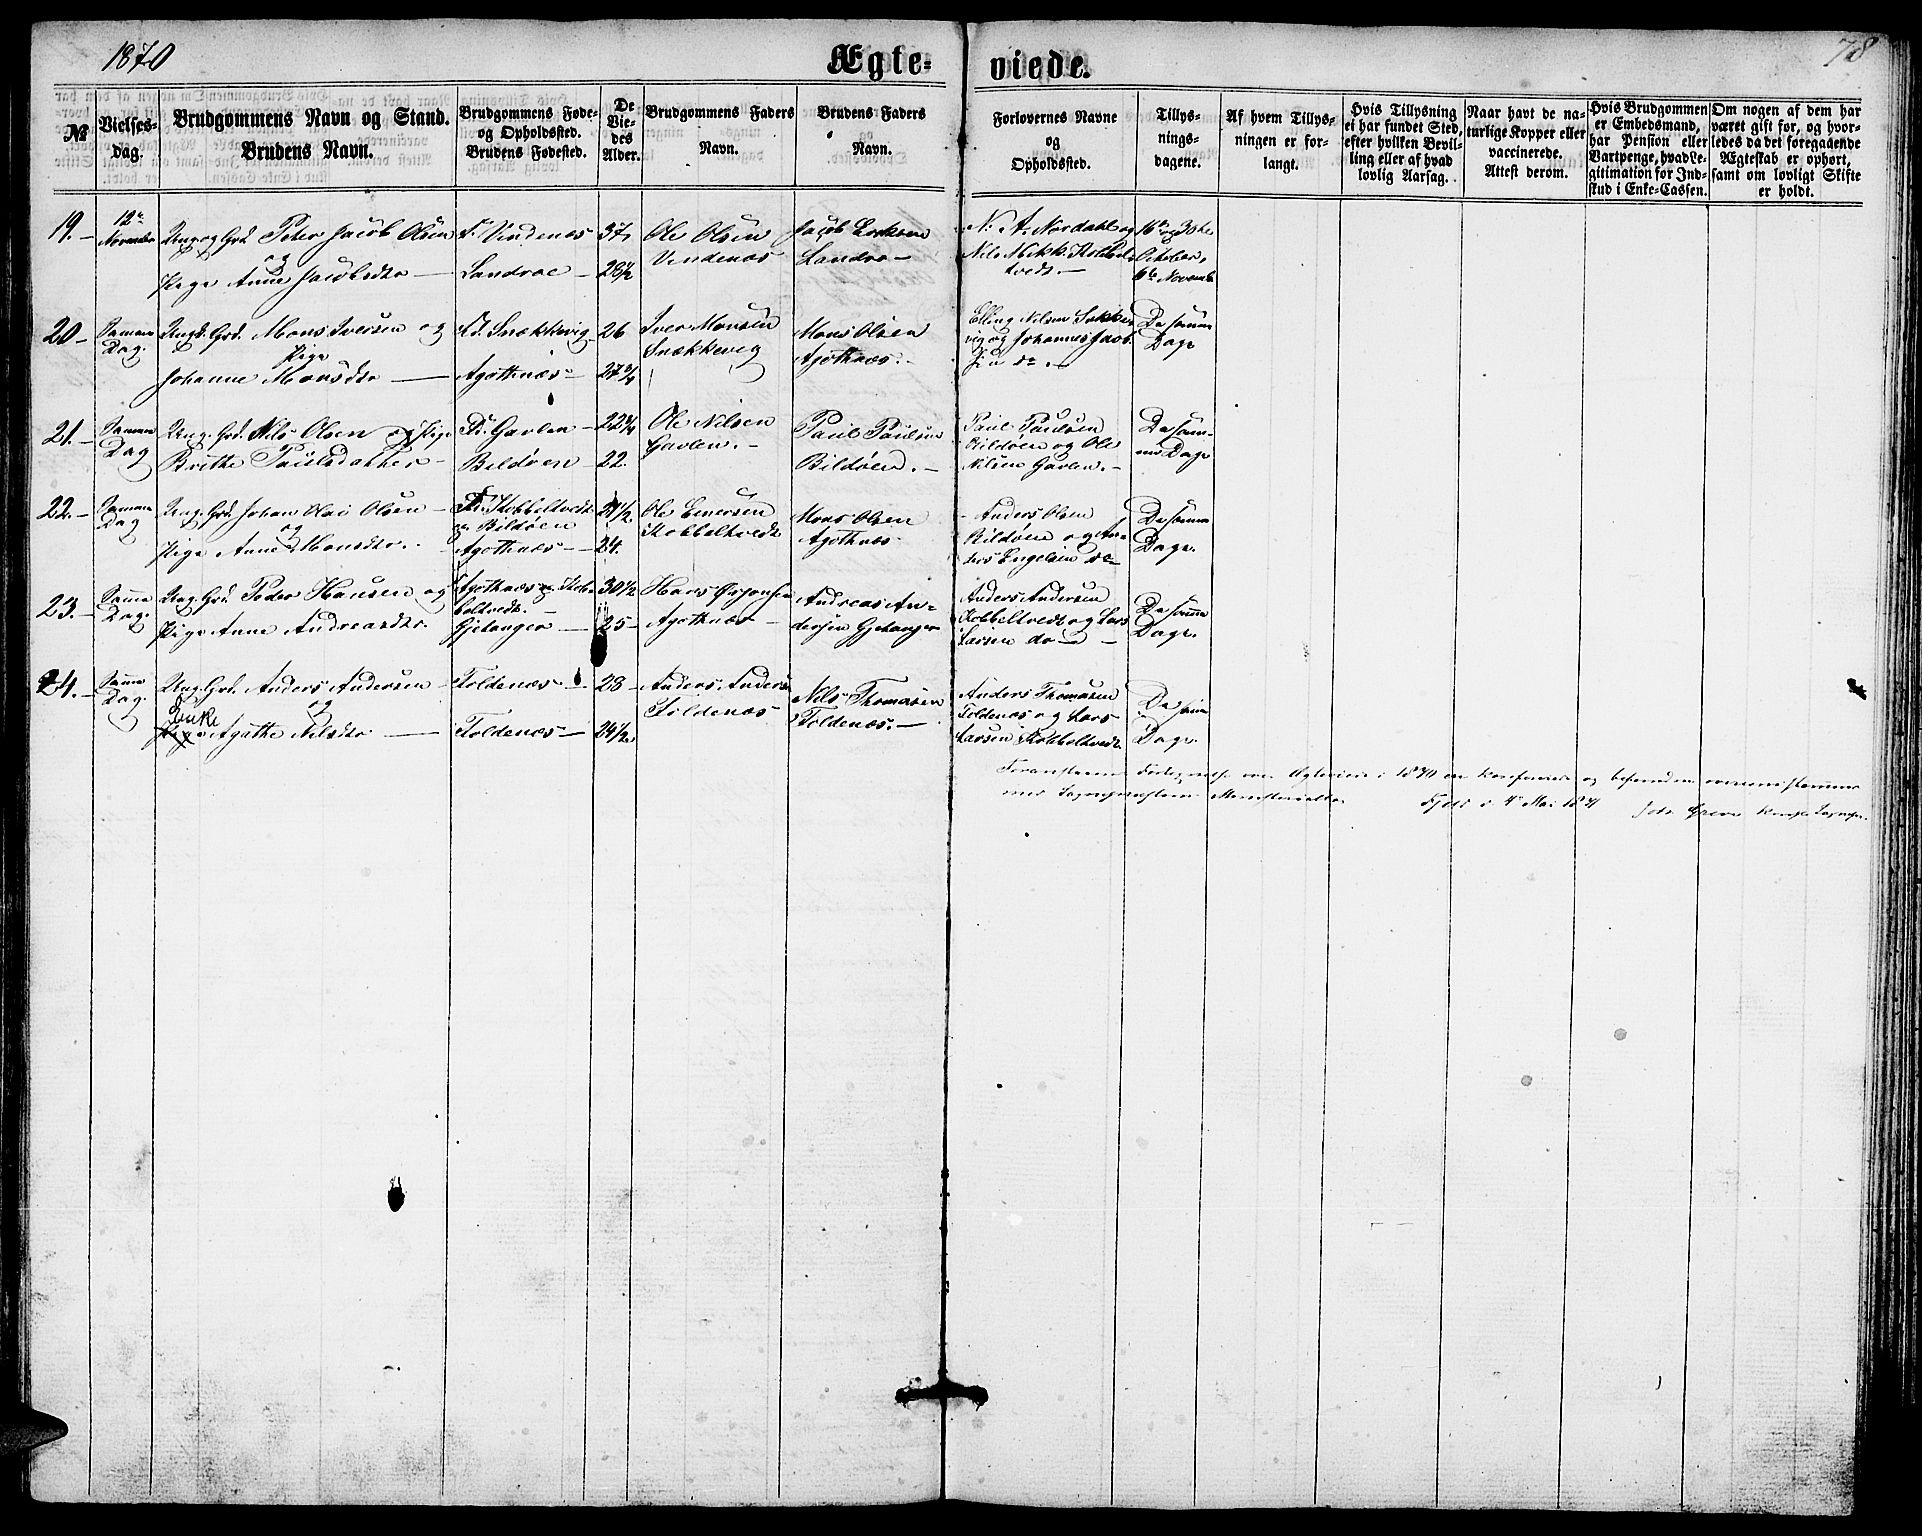 1870
Ægte-
viede.
78
№
Vielses-
dag.
Brudgommens Navn og Stand.
Brudens Navn.
Brudgommens Føde-
og Opholdssted.
Brudens Fødested.
De
Vie-
des
Alder.
Brudgommens Faders
Navn.
Brudens Faders
Navn.
Forlovernes Navne
og
Opholdssted.
Tillys-
nings-
dagene.
Af hvem Tillys-
ningen er for-
langt.
Hvis Tillysning
ei har fundet Sted,
efter hvilken Bevil-
ling eller af hvad
lovlig Aarsag.
Naar havt de na-
turlige Kopper eller
vaccinerede.
Attest derom.
Hvis Brudgommen
er Embedsmand,
har Pension eller
Vartpenge, hvad Le-
gitimation for Ind-
skud i Enke-Cassen.
Om nogen af dem har
været gift før, og hvor-
ledes da det foregaaende
Ægteskab er ophørt,
samt om lovligt Skifte
er holdt.
19.-
12te
November
Ung. og Grd. Peter Jacob Olsen
og
Pige Anne Jacobsdtr
F. Vindenæs
Landroe
37
28 1/2
Ole Olsen
Vindenæs
Jacob
Landro
N. A. Nordahl og
Nils Mikk. Kobbel-
tvedt.
16de og 30te
October,
6te Novemb
20-
Samme
Dag.
Ungk. Grd. Mons Iversen og
Pige
Johanne Monsdtr
Fd. Snækkevig
Agotnæs
26
27 3/4
Iver Monsen
Snækkevig
Mons Olsen
Agothnæs.
Elling Nilsen Snække-
vig og Johannes Jacob-
sen do.
De samme
Dage
21.-
Samme
Dag
Ung. Grd. Nils Olsen og Pige
Brithe Paulsdatter
Fd. Gavlen
Bildøen
22 3/4
22.
Ole Nilsen
Gavlen.
Paul Paulsen
Bildøen.
Paul Paulsen
Bildøen og Ole
Nilsen Gavlen.
De sam-
me Dage
22.-
Samme
Dag
Ung. Grd. Johan Olai Olsen
og
Pige Anne Monsdtr.
Fd. Kobbeltvedt
og Bildøen
Agothnæs
24.
Ole
Kobbeltvedt
Mons Olsen
Agothnæs
Anders Olsen
Bildøen og An-
ders Engelsen do
De samme
Dage.
23.-
Samme
Dag.
Ung. Grd. Peder Hansen og
Pige Anne Andreasdtr.
Agothnæs og Kob-
beltvedt.
Gjetanger
30 1/2
25
Hans
Agothnæs
Andreas An-
dersen Gjetanger
Anders Andersen
Kobbeltvedt og Lars
Larsen do
De samme
Dage.
24.-
Samme
Dag.
Ung. Grd. Anders Andersen
og
Enke
Pige Agathe Nilsdtr
Foldenæs
Foldenæs
28
24 1/2
Anders Andersen
Foldenæs
Nils Thomasen
Foldenæs.
Anders Thomasen
Foldenæs og Lars
Larsen Kobbeltvedt.
De samme
Dage.
Foranstaaende Fortegnelse over Ægteviede i 1870 er konfereret og befunden overensstemmende
med Sognepræstens Ministerialbog Fjeld d. 4 Mai 1871 Joh. Greve